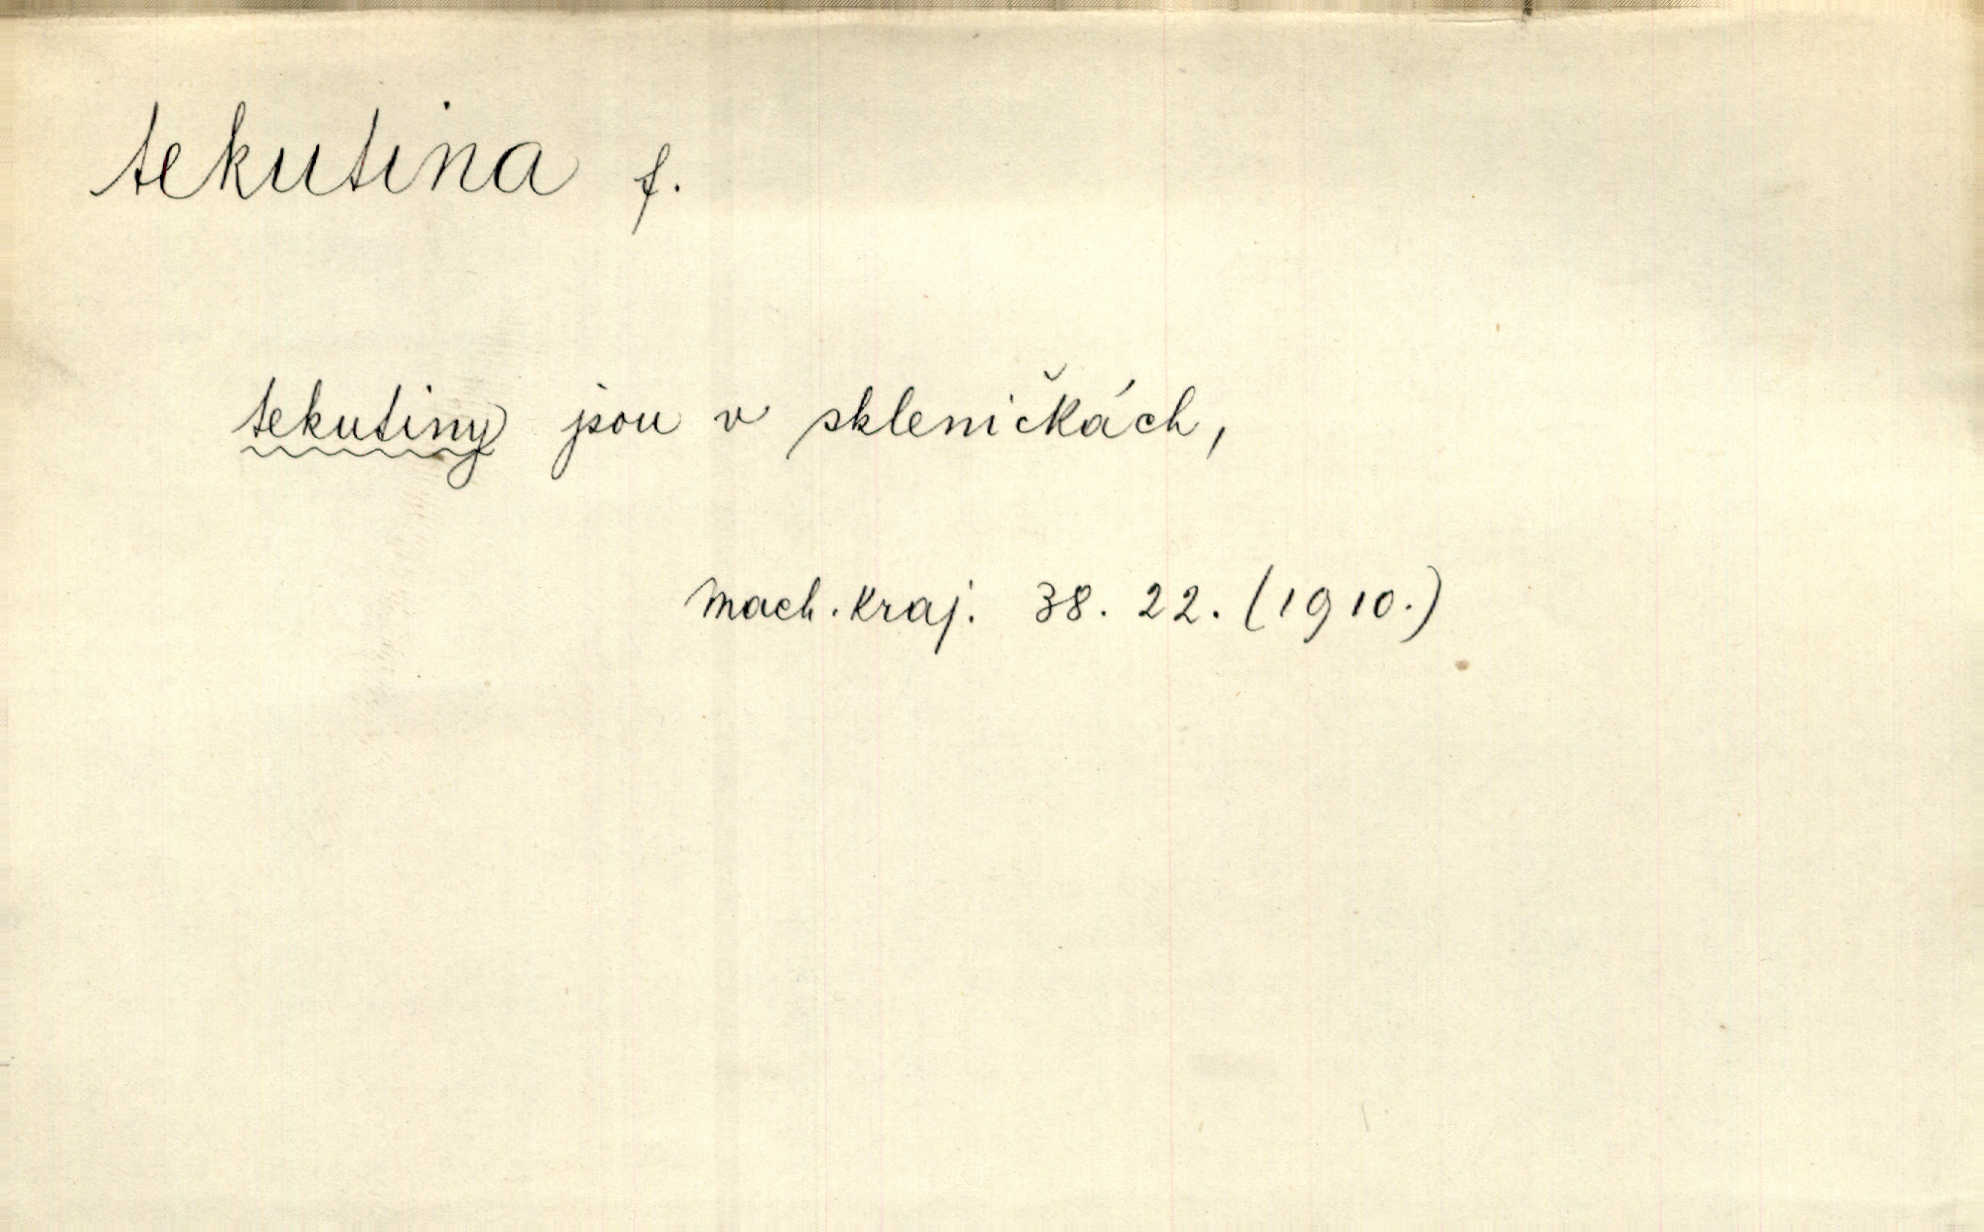 tekutina f.
tekutiny jsou v skleničkách,
Mach. Kraj. 38. 22. (1910.)